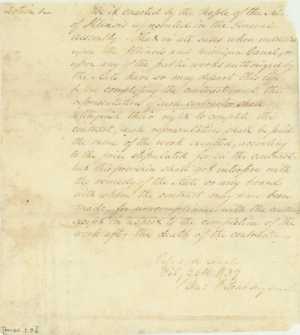 Section 1. Be it enacted by the People of the State
of Illinois represented in the General
Assembly That in all cases when contractors
upon the Illinois and Michigan Canal, or
upon any of the public works authorized by
the State have or may depart this life
before completing the contract and the
representatives of such contractor shall
relinquish their right to complete the
contract, such representatives shall be paid
the value of the work executed, according
to the price stipulated for in the contract
but this provision shall not interfere with
the remedy of the State or any board
with whom the contract may have been
made for noncompliance with the contract
except in respect to the completion of the
work after the death of the contractor
Feby 26th 1839